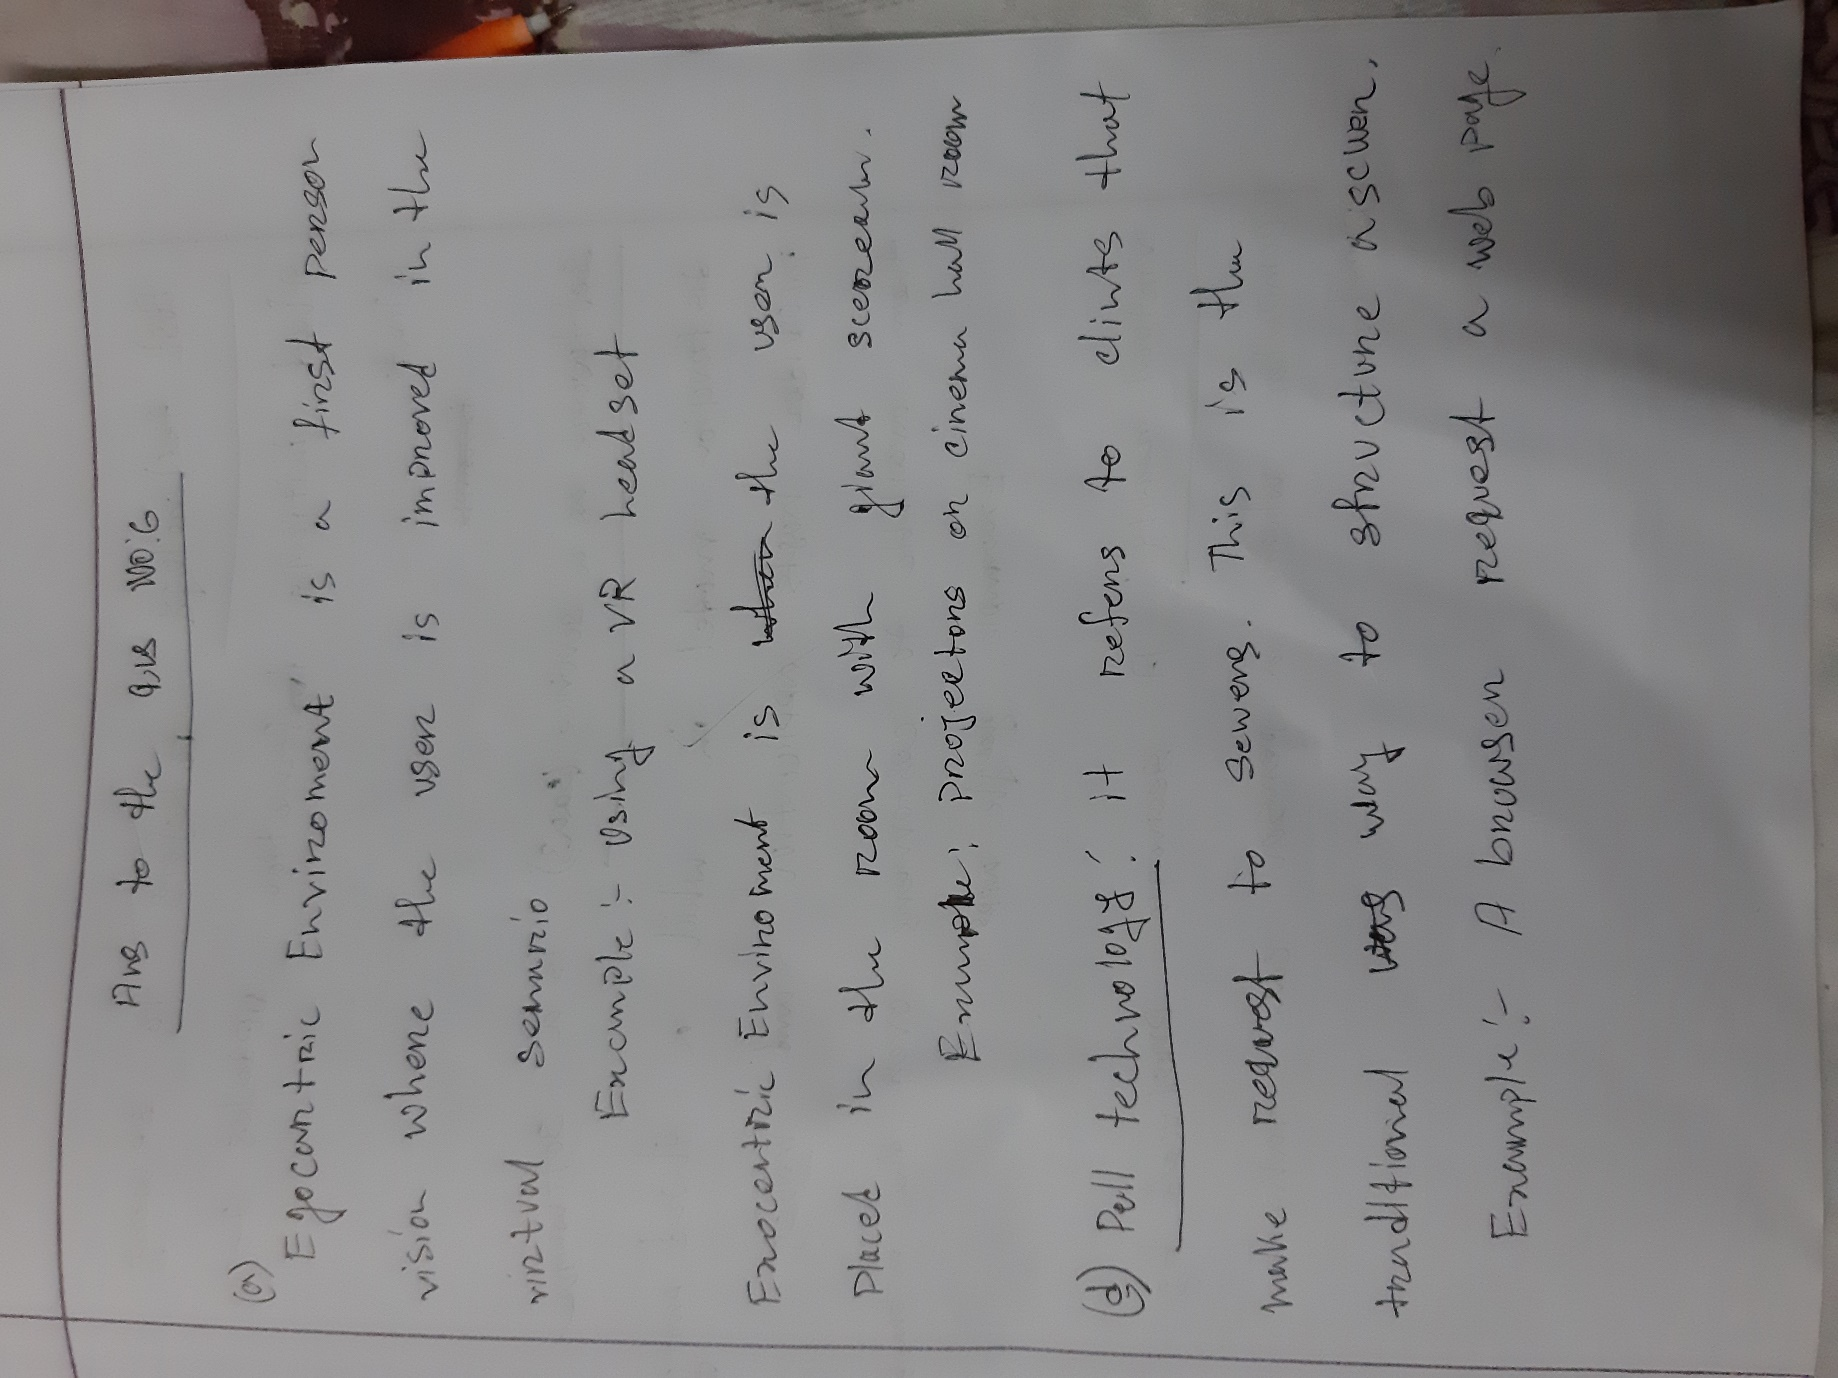 Ans to the qus No:6
(a)
Egocentric Environment is a first person
vision where the user is improved in the
virtual senario
Example:- Using a VR headset
Exocentric Environment is the user is
placed in the room with giant screen.
Example: projectors or cinema hall room
(d) Pull technology: it refers to clints that
make request to servers. This is the
traditional way to structure a
Example:- A browser request a web page.